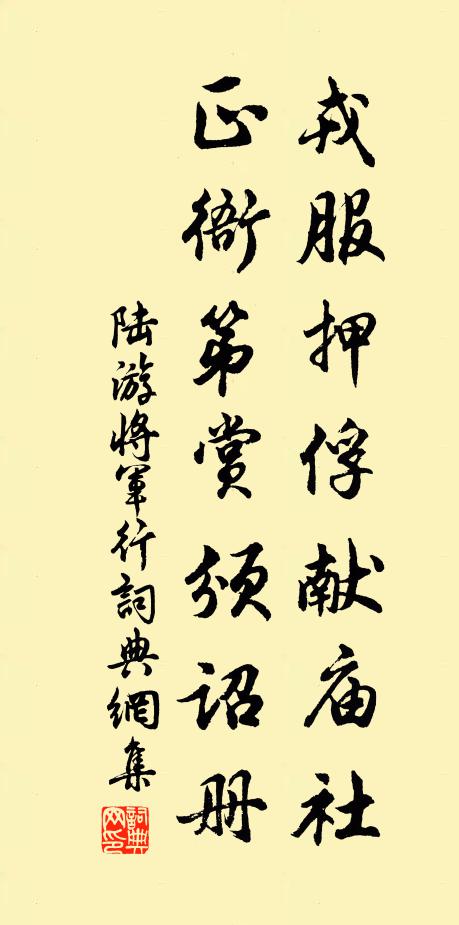 戎服押俘献庙社
正衙第赏颁诏册
陆游将军行詞典網集
詞典网印